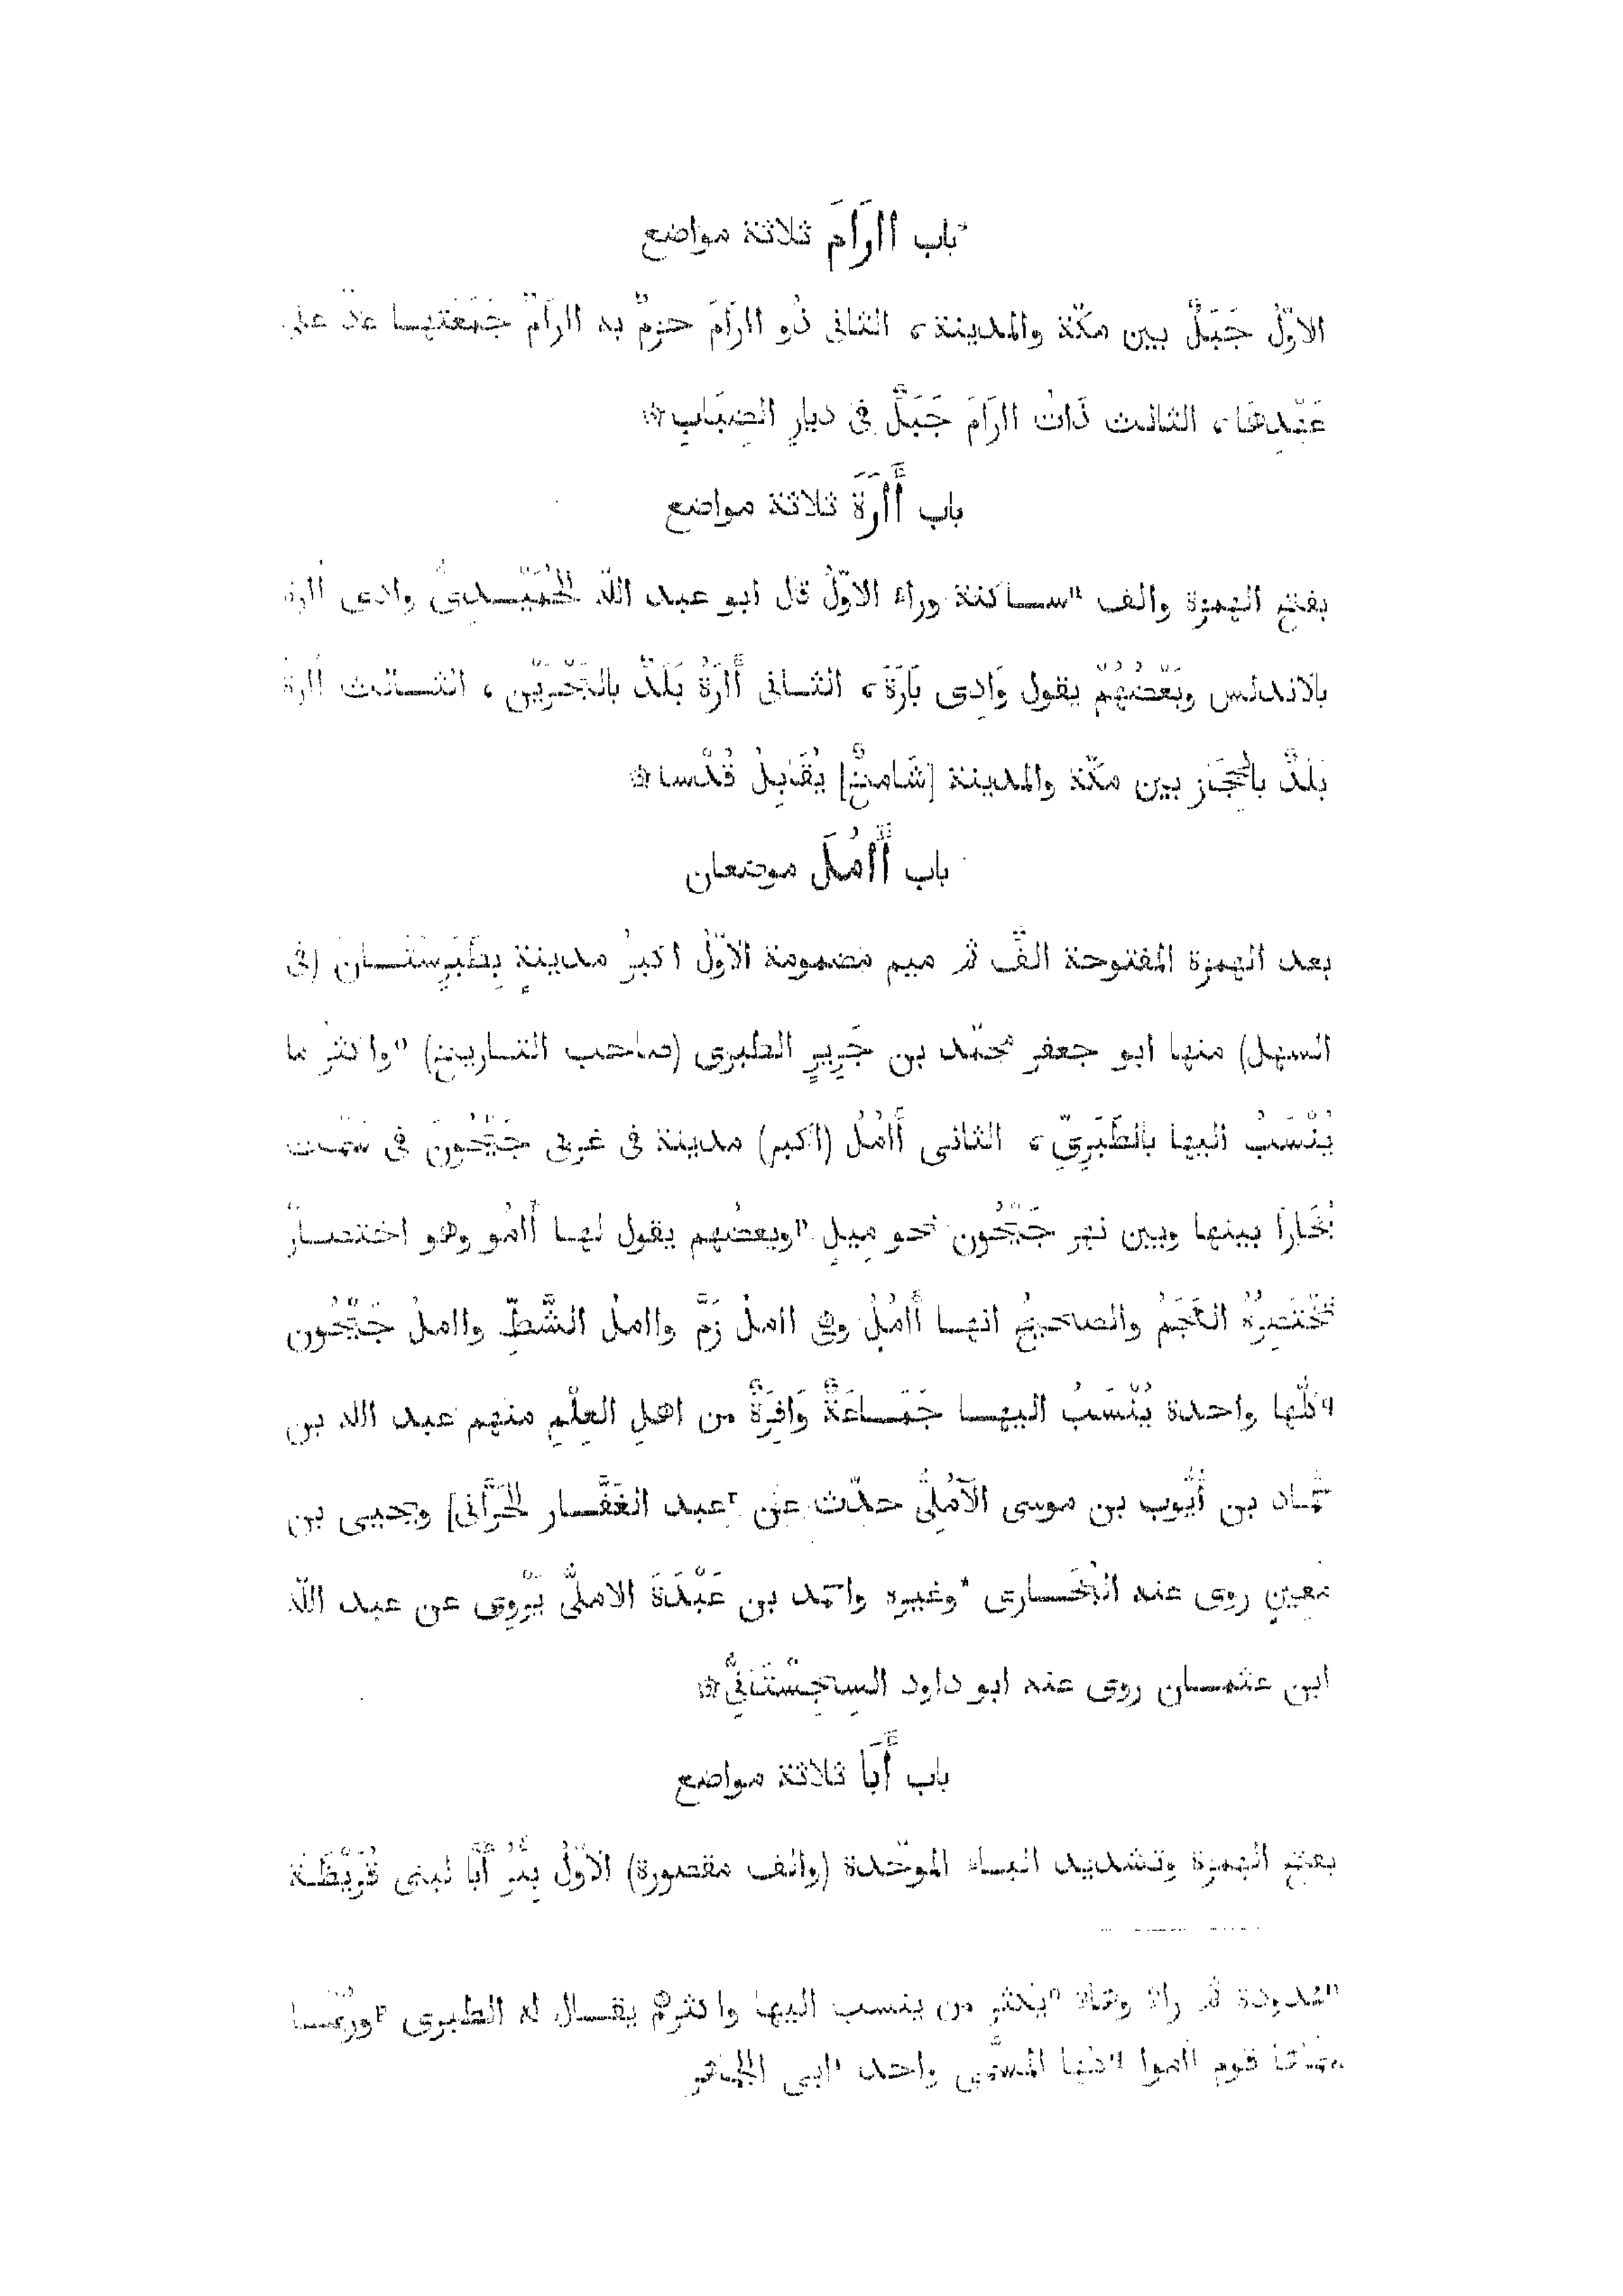 باب اارَامَ ثلاثة مواضع
الاوّلُ جَبَلٌ بين مكّة والمدينة، الثانى ذُو اارَامَ حزمٌ به اارَامٌ جَمَعَتْها عادٌ على
عَهْدِهَا، الثالث ذَات اارَامَ جَبَلٌ فى ديارِ الضِبَابِ۞
باب أَارَةَ ثلاثة مواضع
بفتح الهمزة والف "ساكنة وراء الاوّلُ قال ابو عبد اللّه الحُمَيْدىُّ وادى اارة
بالاندلس وبَعْضُهُمْ يقول وَادِى يَارَةَ، الثانى أَارَةُ بَلَدٌ بالبَحْرَيْن، الثالث اارة
بَلَدٌ بالحِجَاز بين مكّة والمدينة [شَامِخٌ] يُقَابِلُ قُدْسا۞
باب أَامُلَ موضعان
بعد الهمزة المفتوحة الفٌ ثم ميم مضمومة الاوّلُ اكبرُ مدينةٍ بِطَبَرِسْتَان (فى
السهل) منها ابو جعفر محمّد بن جَرِيرٍ الطبرى (صاحب التاريخ) "واكثرُ ما
يُنْسَبُ اليها بالطَبَرِىِّ، الثانى أَامُلُ (اكبر) مدينة فى غربى جَيْحُونَ فى سَمْت
بُخَارَا بينها وبين نهر جَيْحُون نحو مِيلٍ "وبعضُهم يقول لها أَامُو وهو اختصارٌ
تَخْتَصِرُهُ العَجَمُ والصحيحُ انها أَامُلُ وهى اامل زَمَّ واامل الشَّطِّ واامل جَيْحُون
"كلّها واحدة يُنْسَبُ اليها جَمَاعَةٌ وَافِرَةٌ من اهلِ العِلْمِ منهم عبد الله بن
حمّاد بن أَيُّوب بن موسى الآمُلِىُّ حدّث عن "عبد الغَفَّار الحَرَّانى] ويحيى بن
مَعِينٍ روى عنه البُخارى *وغيره واحمد بن عَبْدَةَ الاملىُّ يَرْوِى عن عبد اللّه
ابن عثمان روى عنه ابو داود السِجِسْتَنِىُّ۞
باب أَبَّا ثلاثة مواضع
بفتح الهمزة وتشديد الباء الموحّدة (والف مقصورة) الاوّلُ بِئْرُ أَبَّا لبنى قُرَيْظَة
"ممدودة ثم راء وهاء "يكثر من ينسب اليها واكثرهم يقال له الطبرى "وربّما
قوم اامو المسمّى واحد